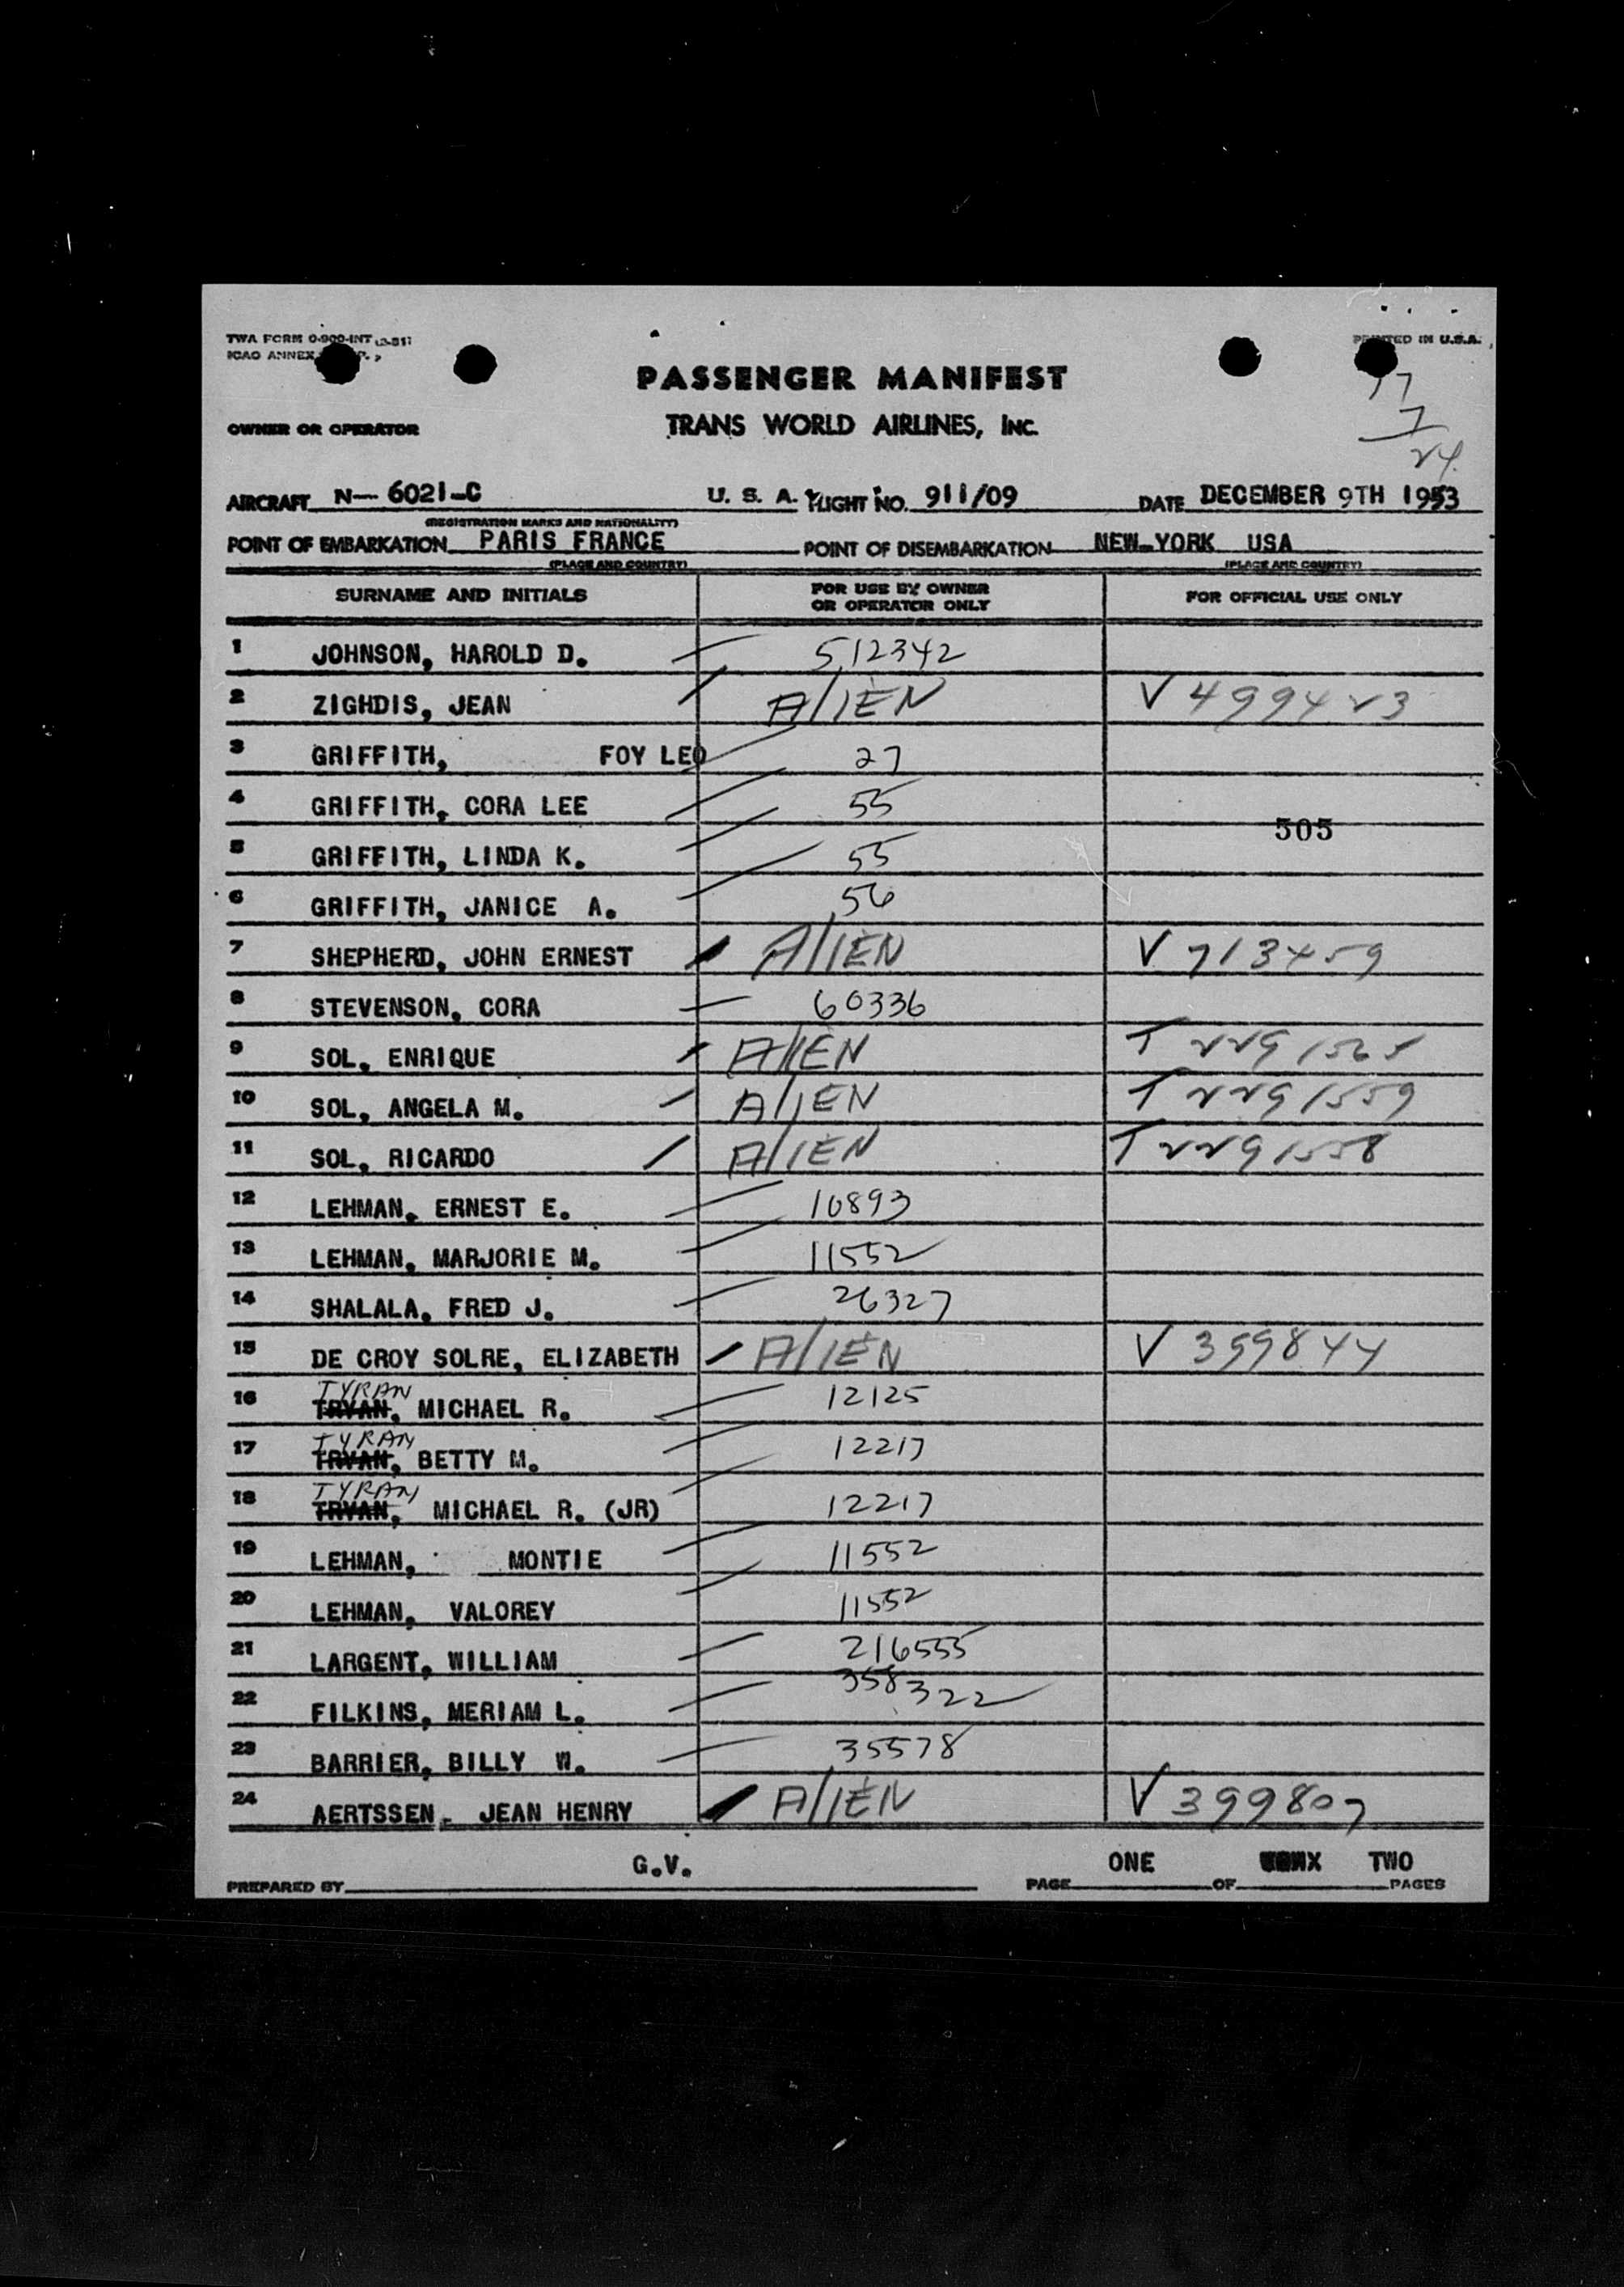 TWA FORM 0-900-INT (2-51)
PRINTED IN U.S.A.
ICAO ANNEX
PASSENGER MANIFEST
17
7
24
OWNER OR OPERATOR
TRANS WORLD AIRLINES, INC.
AIRCRAFT N-- 6021-C U. S. A. FLIGHT NO. 911/09 DATE DECEMBER 9TH 1953
(REGISTRATION MARKS AND NATIONALITY)
POINT OF EMBARKATION PARIS FRANCE POINT OF DISEMBARKATION NEW-YORK USA
(PLACE AND COUNTRY) (PLACE AND COUNTRY)
SURNAME AND INITIALS FOR USE BY OWNER OR OPERATOR ONLY FOR OFFICIAL USE ONLY
1 JOHNSON, HAROLD D. 512342
2 ZIGHDIS, JEAN ALIEN V 4994223
3 GRIFFITH, FOY LEO 27
4 GRIFFITH, CORA LEE 55
505
5 GRIFFITH, LINDA K. 55
6 GRIFFITH, JANICE A. 56
7 SHEPHERD, JOHN ERNEST ALIEN V 713459
8 STEVENSON, CORA 60336
9 SOL, ENRIQUE ALIEN T 2291565
10 SOL, ANGELA M. ALIEN T 2291559
11 SOL, RICARDO ALIEN T 2291558
12 LEHMAN, ERNEST E. 10893
13 LEHMAN, MARJORIE M. 11552
14 SHALALA, FRED J. 26327
15 DE CROY SOLRE, ELIZABETH ALIEN V 359844
TYRAN
16 TRYAN, MICHAEL R. 12125
TYRAN
17 TRYAN, BETTY M. 12217
TYRAN
18 TRYAN, MICHAEL R. (JR) 12217
19 LEHMAN, MONTIE 11552
20 LEHMAN, VALOREY 11552
21 LARGENT, WILLIAM 216555
22 FILKINS, MERIAM L. 358322
23 BARRIER, BILLY W. 35578
24 AERTSSEN- JEAN HENRY ALIEN V 399807
PREPARED BY G.V. PAGE ONE OF TWO PAGES